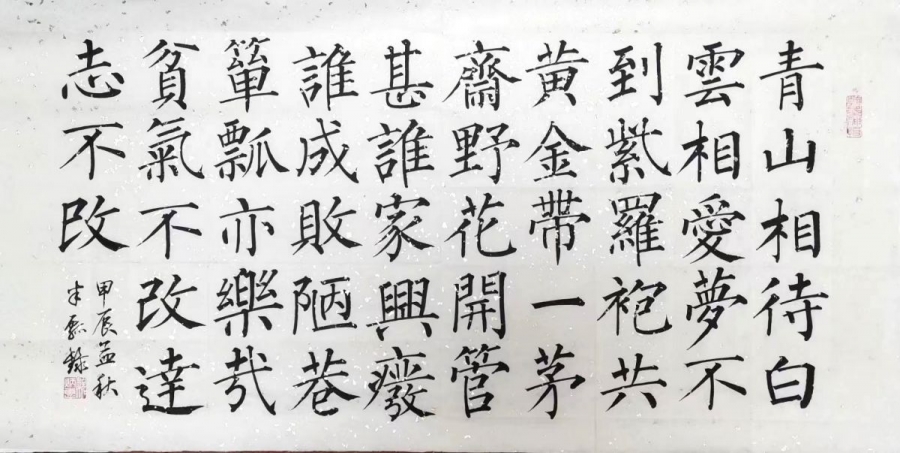 青山相待白
雲相愛夢不
到紫羅袍共
黄金帶一茅
齋野花開管
甚誰家興癈
誰成敗陋巷
簞瓢亦樂哉
貧氣不改達
志不改
甲辰孟秋